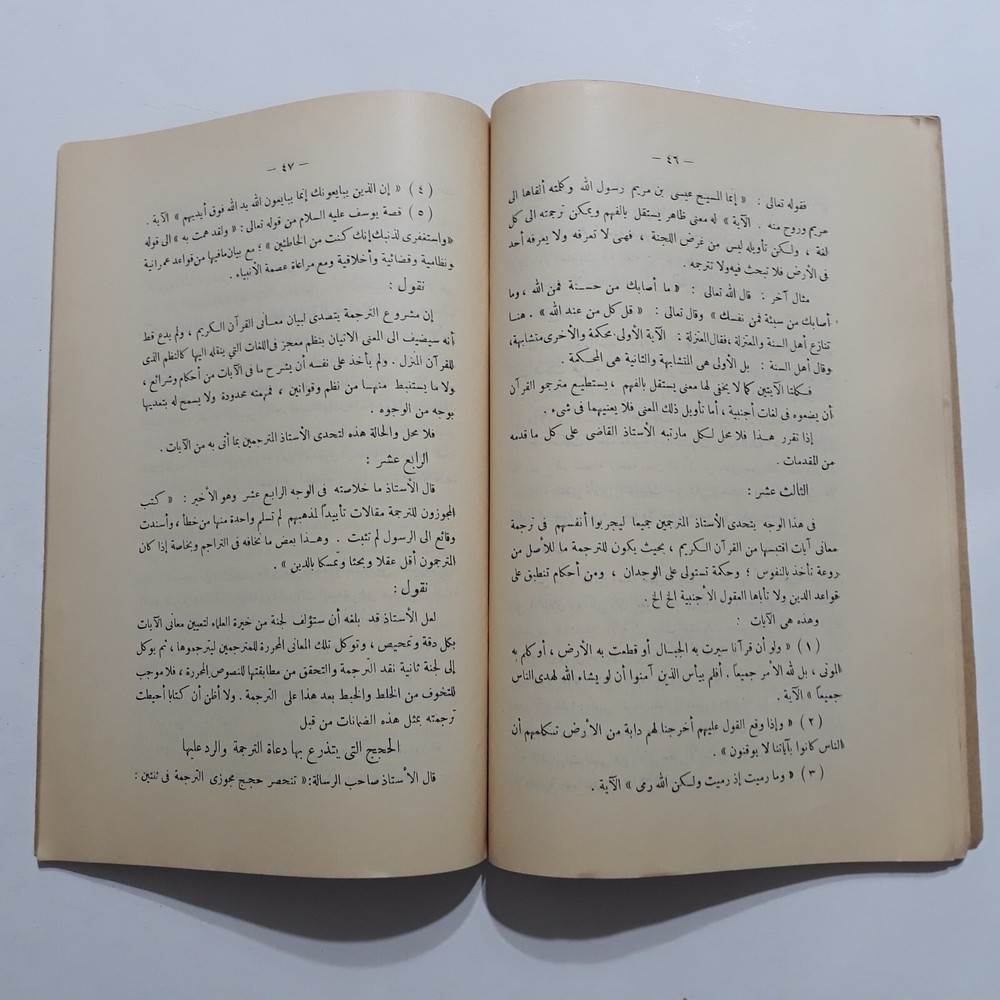 — ٤٦ —
فقوله تعالى : « إنما المسيح عيسى بن مريم رسول الله وكلمته ألقاها الى
مريم وروح منه . الآية » له معنى ظاهر يستقل بالفهم ويمكن ترجمته الى كل
لغة ، ولكن تأويله ليس من غرض اللجنة ، فهى لا تعرفه ولا يعرفه أحد
فى الأرض فلا تبحث فيه ولا تترجمه .
مثال آخر : قال الله تعالى : « ما أصابك من حسنة فمن الله ، وما
أصابك من سيئة فمن نفسك » وقال تعالى : « قل كل من عند الله » . هنا
تنازع أهل السنة والمعتزلة ، فقال المعتزلة : الآية الأولى محكمة والأخرى متشابهة،
وقال أهل السنة : بل الأولى هى المتشابهة والثانية هى المحكمة .
فكلتا الآيتين كما لا يخفى لها معنى يستقل بالفهم ، يستطيع مترجمو القرآن
أن يضعوه فى لغات أجنبية ، أما تأويل ذلك المعنى فلا يعنيهما فى شىء .
إذا تقرر هذا فلا محل لكل مارتبه الأستاذ القاضى على كل ما قدمه
من المقدمات .
الثالث عشر :
فى هذا الوجه يتحدى الأستاذ المترجمين جميعا ليجربوا أنفسهم فى ترجمة
معانى آيات اقتبسها من القرآن الكريم ، بحيث يكون للترجمة ما للأصل من
روعة تأخذ بالنفوس ؛ وحكمة تستولى على الوجدان ، ومن أحكام تنطبق على
قواعد الدين ولا تأباها العقول الأجنبية الخ الخ .
وهذه هى الآيات :
(١) « ولو أن قرآنا سيرت به الجبال أو قطعت به الأرض ، أو كلم به
الموتى ، بل لله الأمر جميعاً . أفلم ييأس الذين آمنوا أن لو يشاء الله لهدى الناس
جميعاً » الآية .
(٢) « وإذا وقع القول عليهم أخرجنا لهم دابة من الأرض تكلمهم أن
الناس كانوا بآياتنا لا يوقنون » .
(٣) « وما رميت إذ رميت ولكن الله رمى » الآية .
— ٤٧ —
(٤) « إن الذين يبايعونك إنما يبايعون الله يد الله فوق أيديهم » الآية .
(٥) قصة يوسف عليه السلام من قوله تعالى : « ولقد همت به » الى قوله
«واستغفرى لذنبك إنك كنت من الخاطئين » ؛ مع بيان مافيها من قواعد عمرانية
ونظامية وقضائية وأخلاقية ومع مراعاة عصمة الأنبياء .
نقول :
إن مشروع الترجمة يتصدى لبيان معانى القرآن الكريم ، ولم يدع قط
أنه سيضيف الى المعنى الاتيان بنظم معجز فى اللغات التي ينقله اليها كالنظم الذى
للقرآن المنزل . ولم يأخذ على نفسه أن يشرح ما فى الآيات من أحكام وشرائع ،
ولا ما يستنبط منها من نظم وقوانين ، فمهمته محدودة ولا يسمح له بتعديها
بوجه من الوجوه .
فلا محل والحالة هذه لتحدى الأستاذ المترجمين بما أتى به من الآيات .
الرابع عشر :
قال الأستاذ ما خلاصته فى الوجه الرابع عشر وهو الأخير : « كتب
المجوزون للترجمة مقالات تأييداً لمذهبهم لم تسلم واحدة منها من خطأ ، وأسندت
وقائع الى الرسول لم تثبت . وهذا بعض ما نخافه فى التراجم وبخاصة إذا كان
المترجمون أقل عقلا وبحثا وتمسكا بالدين » .
نقول :
لعل الأستاذ قد بلغه أن ستؤلف لجنة من خيرة العلماء لتعيين معانى الآيات
بكل دقة وتمحيص ، وتوكل تلك المعانى المحررة للمترجمين ليترجموها ، ثم يوكل
إلى لجنة ثانية نقد الترجمة والتحقق من مطابقتها للنصوص المحررة ، فلا موجب
للتخوف من الخلط والخبط بعد هذا على الترجمة . ولا أظن أن كتابا أحيطت
ترجمته بمثل هذه الضمانات من قبل
الحجج التى يتذرع بها دعاة الترجمة والرد عليها
قال الأستاذ صاحب الرسالة: « تنحصر حجج مجوزى الترجمة فى ثنتين :